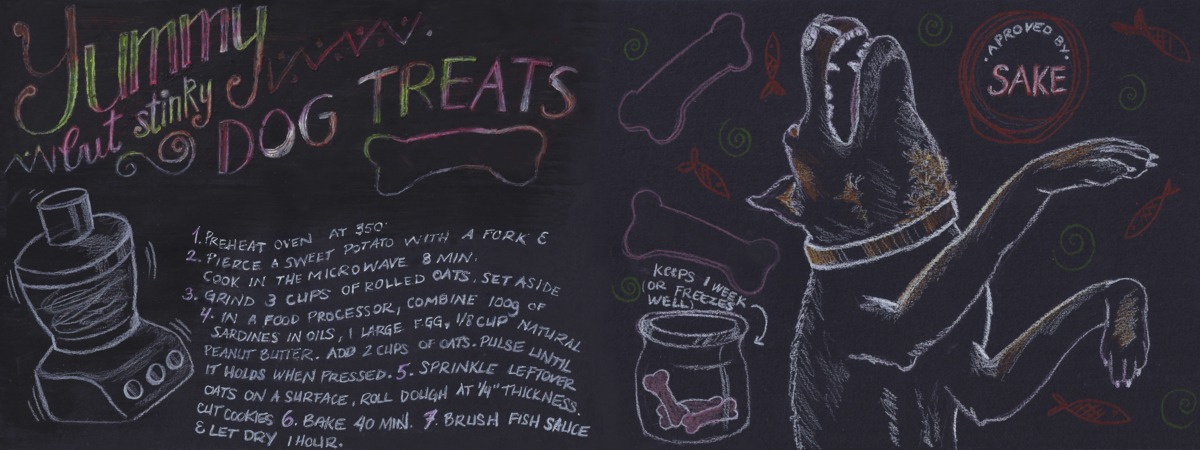 Yummy
but stinky
DOG TREATS
1. PREHEAT OVEN AT 350°
2. PIERCE A SWEET POTATO WITH A FORK &
COOK IN THE MICROWAVE 8 MIN.
3. GRIND 3 CUPS OF ROLLED OATS. SET ASIDE
4. IN A FOOD PROCESSOR, COMBINE 100g OF
SARDINES IN OILS, 1 LARGE EGG, 1/8 CUP NATURAL
PEANUT BUTTER. ADD 2 CUPS OF OATS. PULSE UNTIL
IT HOLDS WHEN PRESSED. 5. SPRINKLE LEFTOVER
OATS ON A SURFACE, ROLL DOUGH AT 1/4" THICKNESS.
CUT COOKIES 6. BAKE 40 MIN. 7. BRUSH FISH SAUCE
& LET DRY 1 HOUR.
APROVED BY
SAKE
KEEPS 1 WEEK
(OR FREEZES
WELL)